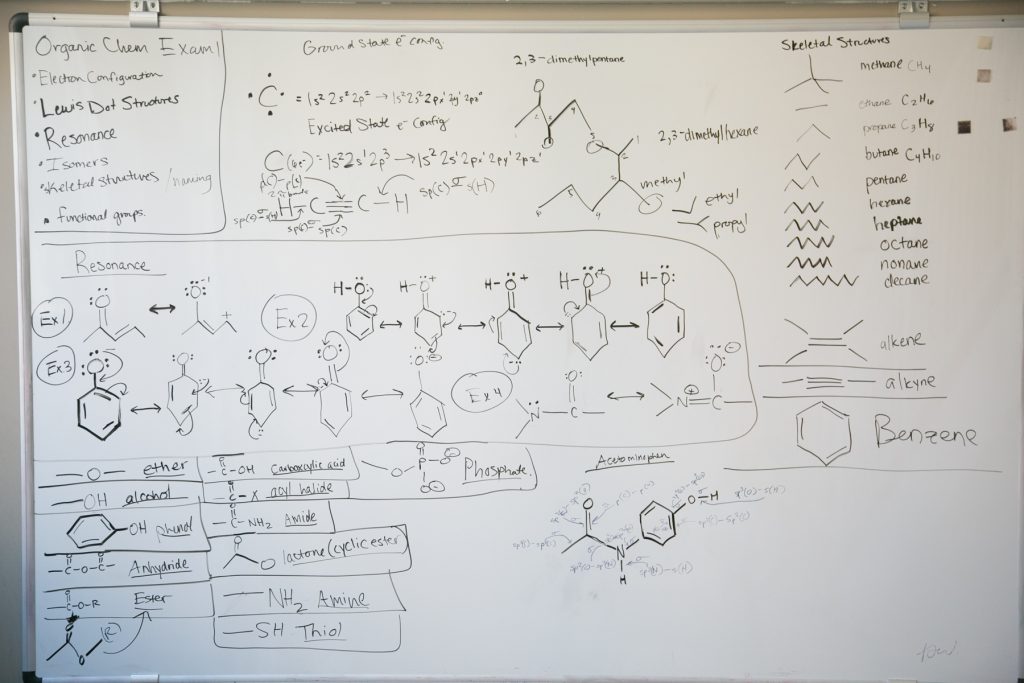 Organic Chem Exam 1
• Electron Configuration
• Lewis Dot Structures
• Resonance
• Isomers
• Skeletal structures / naming
• functional groups.
Ground State e⁻ config.
C = 1s² 2s² 2p² → 1s² 2s² 2px¹ 2py¹ 2pz⁰
Excited State e⁻ Config
C (6e⁻) = 1s² 2s¹ 2p³ → 1s² 2s¹ 2px¹ 2py¹ 2pz¹
H–C≡C–H
sp(c) σ s(H)
sp(c) σ sp(c)
2,3-dimethylpentane
1
2
3
4
5
2,3-dimethylhexane
1
2
3
4
5
6
methyl
ethyl
propyl
Skeletal Structures
methane CH4
ethane C2H6
propane C3H8
butane C4H10
pentane
hexane
heptane
octane
nonane
decane
alkene
alkyne
Benzene
Resonance
Ex 1
O ↔ O
+
Ex 2
H-O ↔ H-O+ ↔ H-O+ ↔ H-O+ ↔ H-O
Ex 3
O ↔ O ↔ O ↔ O ↔ O
Ex 4
N–C–
O
↔
N=C
O
–O– ether
–OH alcohol
–OH phenol
–C–O–C– Anhydride
–C–O–R Ester
O
O
(R)
–C–OH Carboxylic acid
–C–X acyl halide
–C–NH2 Amide
O
O
lactone (cyclic ester)
–NH2 Amine
–SH Thiol
O
O–P–O
O
Phosphate
Acetominophen
O
N
H
O–H
sp³(O)-s(H)